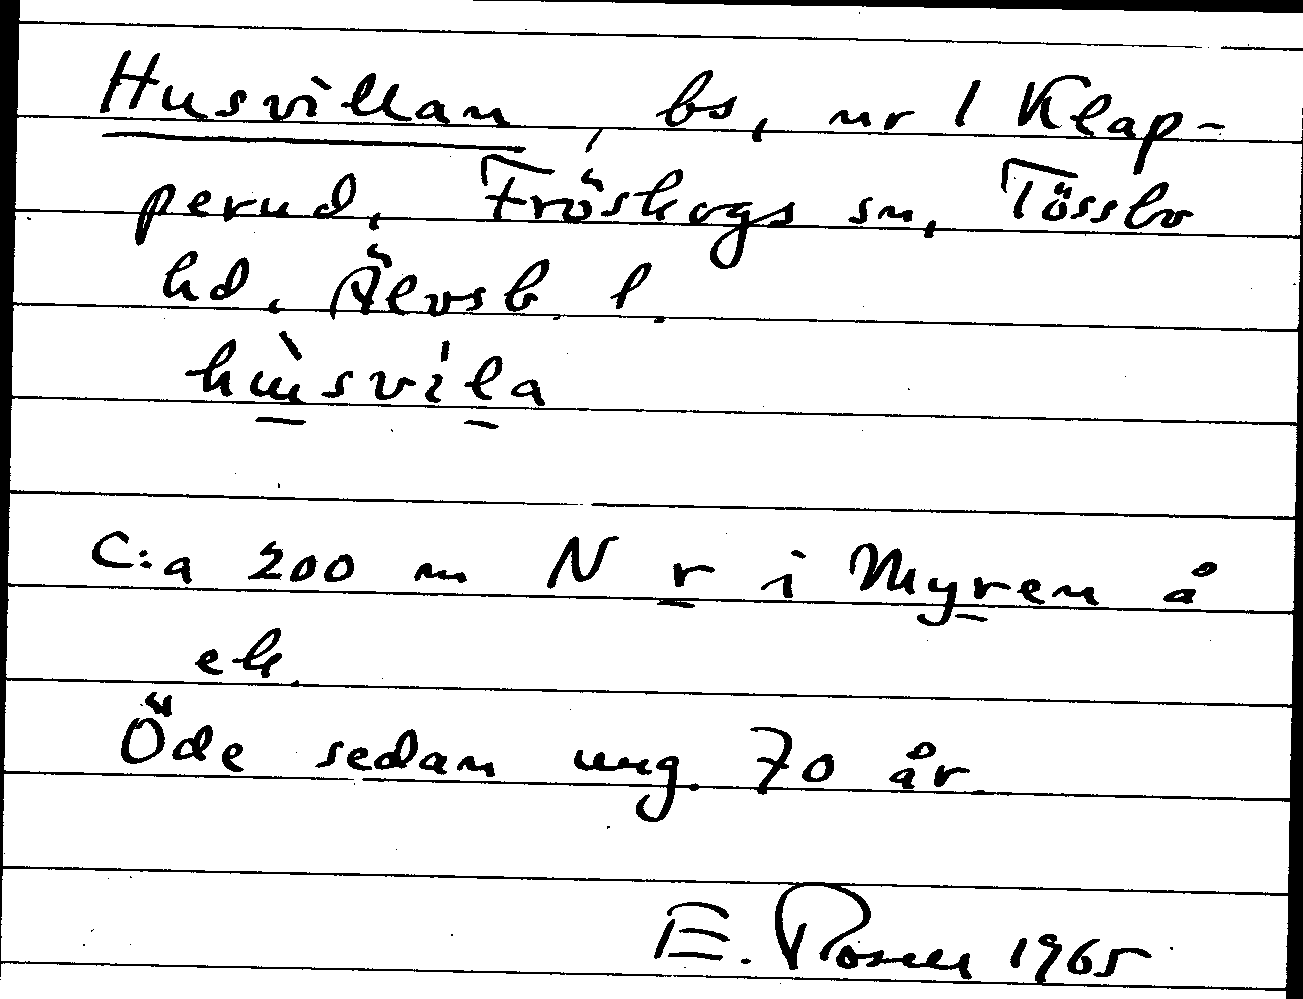 Husvillan, bs, nr 1 Klap-
perud, Fröskogs sn, Tössbo
hd, Älvsb. l.
hù̲svíl̲a
C:a 200 m N r̲ i Myr̲en å
ek.
Öde sedan ung. 70 år.
E. Rosell 1965